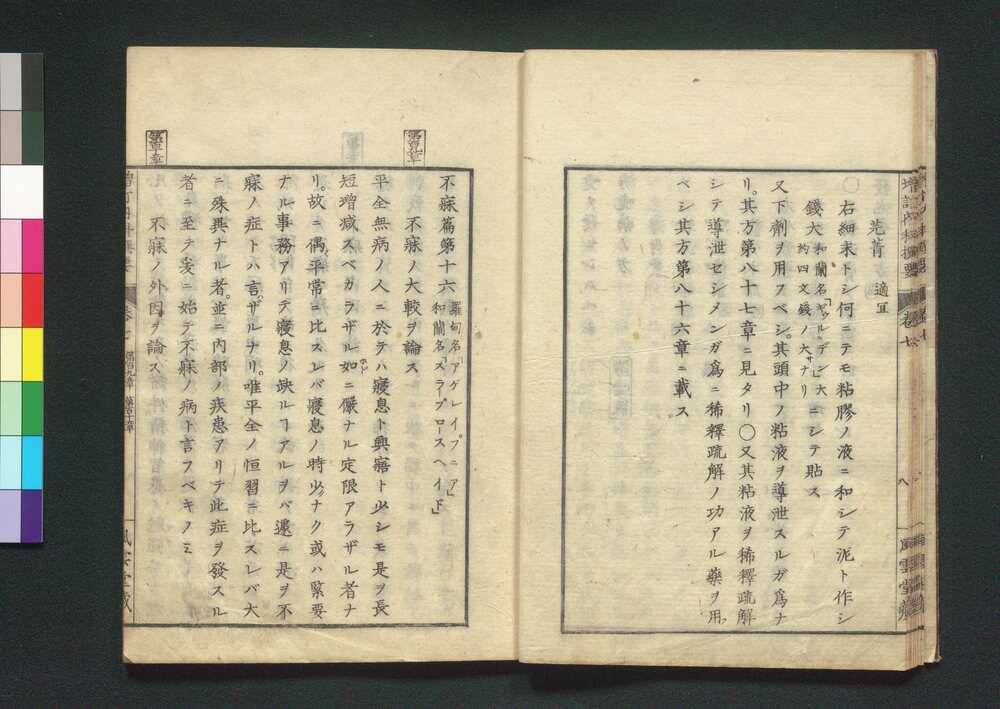 芫菁 適宜
〇右細末トシ何ニテモ粘膠ノ液ニ和シテ泥ト作シ
錢大 和蘭名「ギュルデン」大
約四文錢ノ大サナリ ニシテ貼ス
又下劑ヲ用フベシ。其頭中ノ粘液ヲ導泄スルガ爲ナ
リ。其方第八十七章ニ見タリ〇又其粘液ヲ稀釋疏解
シテ導泄セシメンガ爲ニ稀釋疏解ノ功アル藥ヲ用
ベシ其方第八十六章ニ載ス
増訂内科撰要 卷七
八 風雲堂藏
不寐篇第十六 羅甸名「アゲレイプニア」
和蘭名「スラープロースヘイド」
第百九章
不寐ノ大較ヲ論ス
平全無病ノ人ニ於テハ寢息ト興寤ト少シモ是ヲ長
短增減スベカラザル如ニ儼ナル定限アラザル者ナ
リ。故ニ偶平常ニ比スレバ寢息ノ時少ナク或ハ緊要
ナル事務アリテ寢息ノ缺ルヿアルヲバ遽ニ是ヲ不
寐ノ症トハ言ザルナリ。唯平全ノ恒習ニ比スレバ大
ニ殊異ナル者。並ニ内部ノ疾患アリテ此症ヲ發スル
者ニ至テ爰ニ始テ不寐ノ病ト言フベキノミ
第百十章
不寐ノ外因ヲ論ス
第百九章 第百十章